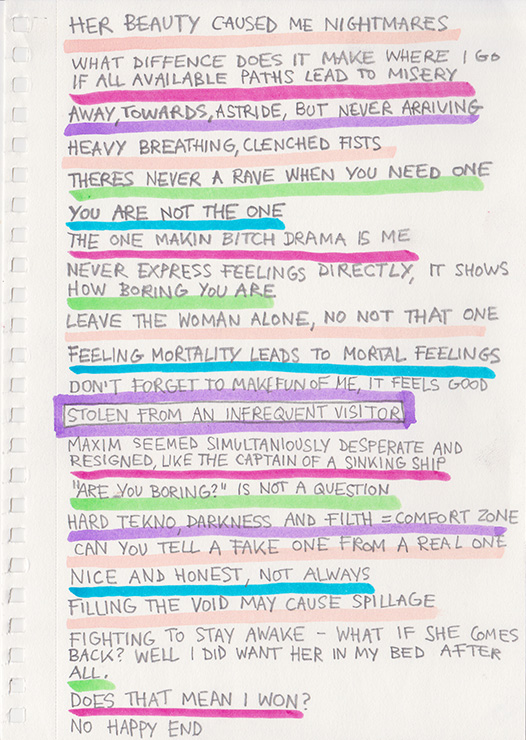 HER BEAUTY CAUSED ME NIGHTMARES
WHAT DIFFENCE DOES IT MAKE WHERE I GO
IF ALL AVAILABLE PATHS LEAD TO MISERY
AWAY, TOWARDS, ASTRIDE, BUT NEVER ARRIVING
HEAVY BREATHING, CLENCHED FISTS
THERES NEVER A RAVE WHEN YOU NEED ONE
YOU ARE NOT THE ONE
THE ONE MAKIN BITCH DRAMA IS ME
NEVER EXPRESS FEELINGS DIRECTLY, IT SHOWS
HOW BORING YOU ARE
LEAVE THE WOMAN ALONE, NO NOT THAT ONE
FEELING MORTALITY LEADS TO MORTAL FEELINGS
DON'T FORGET TO MAKE FUN OF ME, IT FEELS GOOD
STOLEN FROM AN INFREQUENT VISITOR
MAXIM SEEMED SIMULTANIOUSLY DESPERATE AND
RESIGNED, LIKE THE CAPTAIN OF A SINKING SHIP
"ARE YOU BORING?" IS NOT A QUESTION
HARD TEKNO, DARKNESS AND FILTH = COMFORT ZONE
CAN YOU TELL A FAKE ONE FROM A REAL ONE
NICE AND HONEST, NOT ALWAYS
FILLING THE VOID MAY CAUSE SPILLAGE
FIGHTING TO STAY AWAKE - WHAT IF SHE COMES
BACK? WELL I DID WANT HER IN MY BED AFTER
ALL.
DOES THAT MEAN I WON?
NO HAPPY END